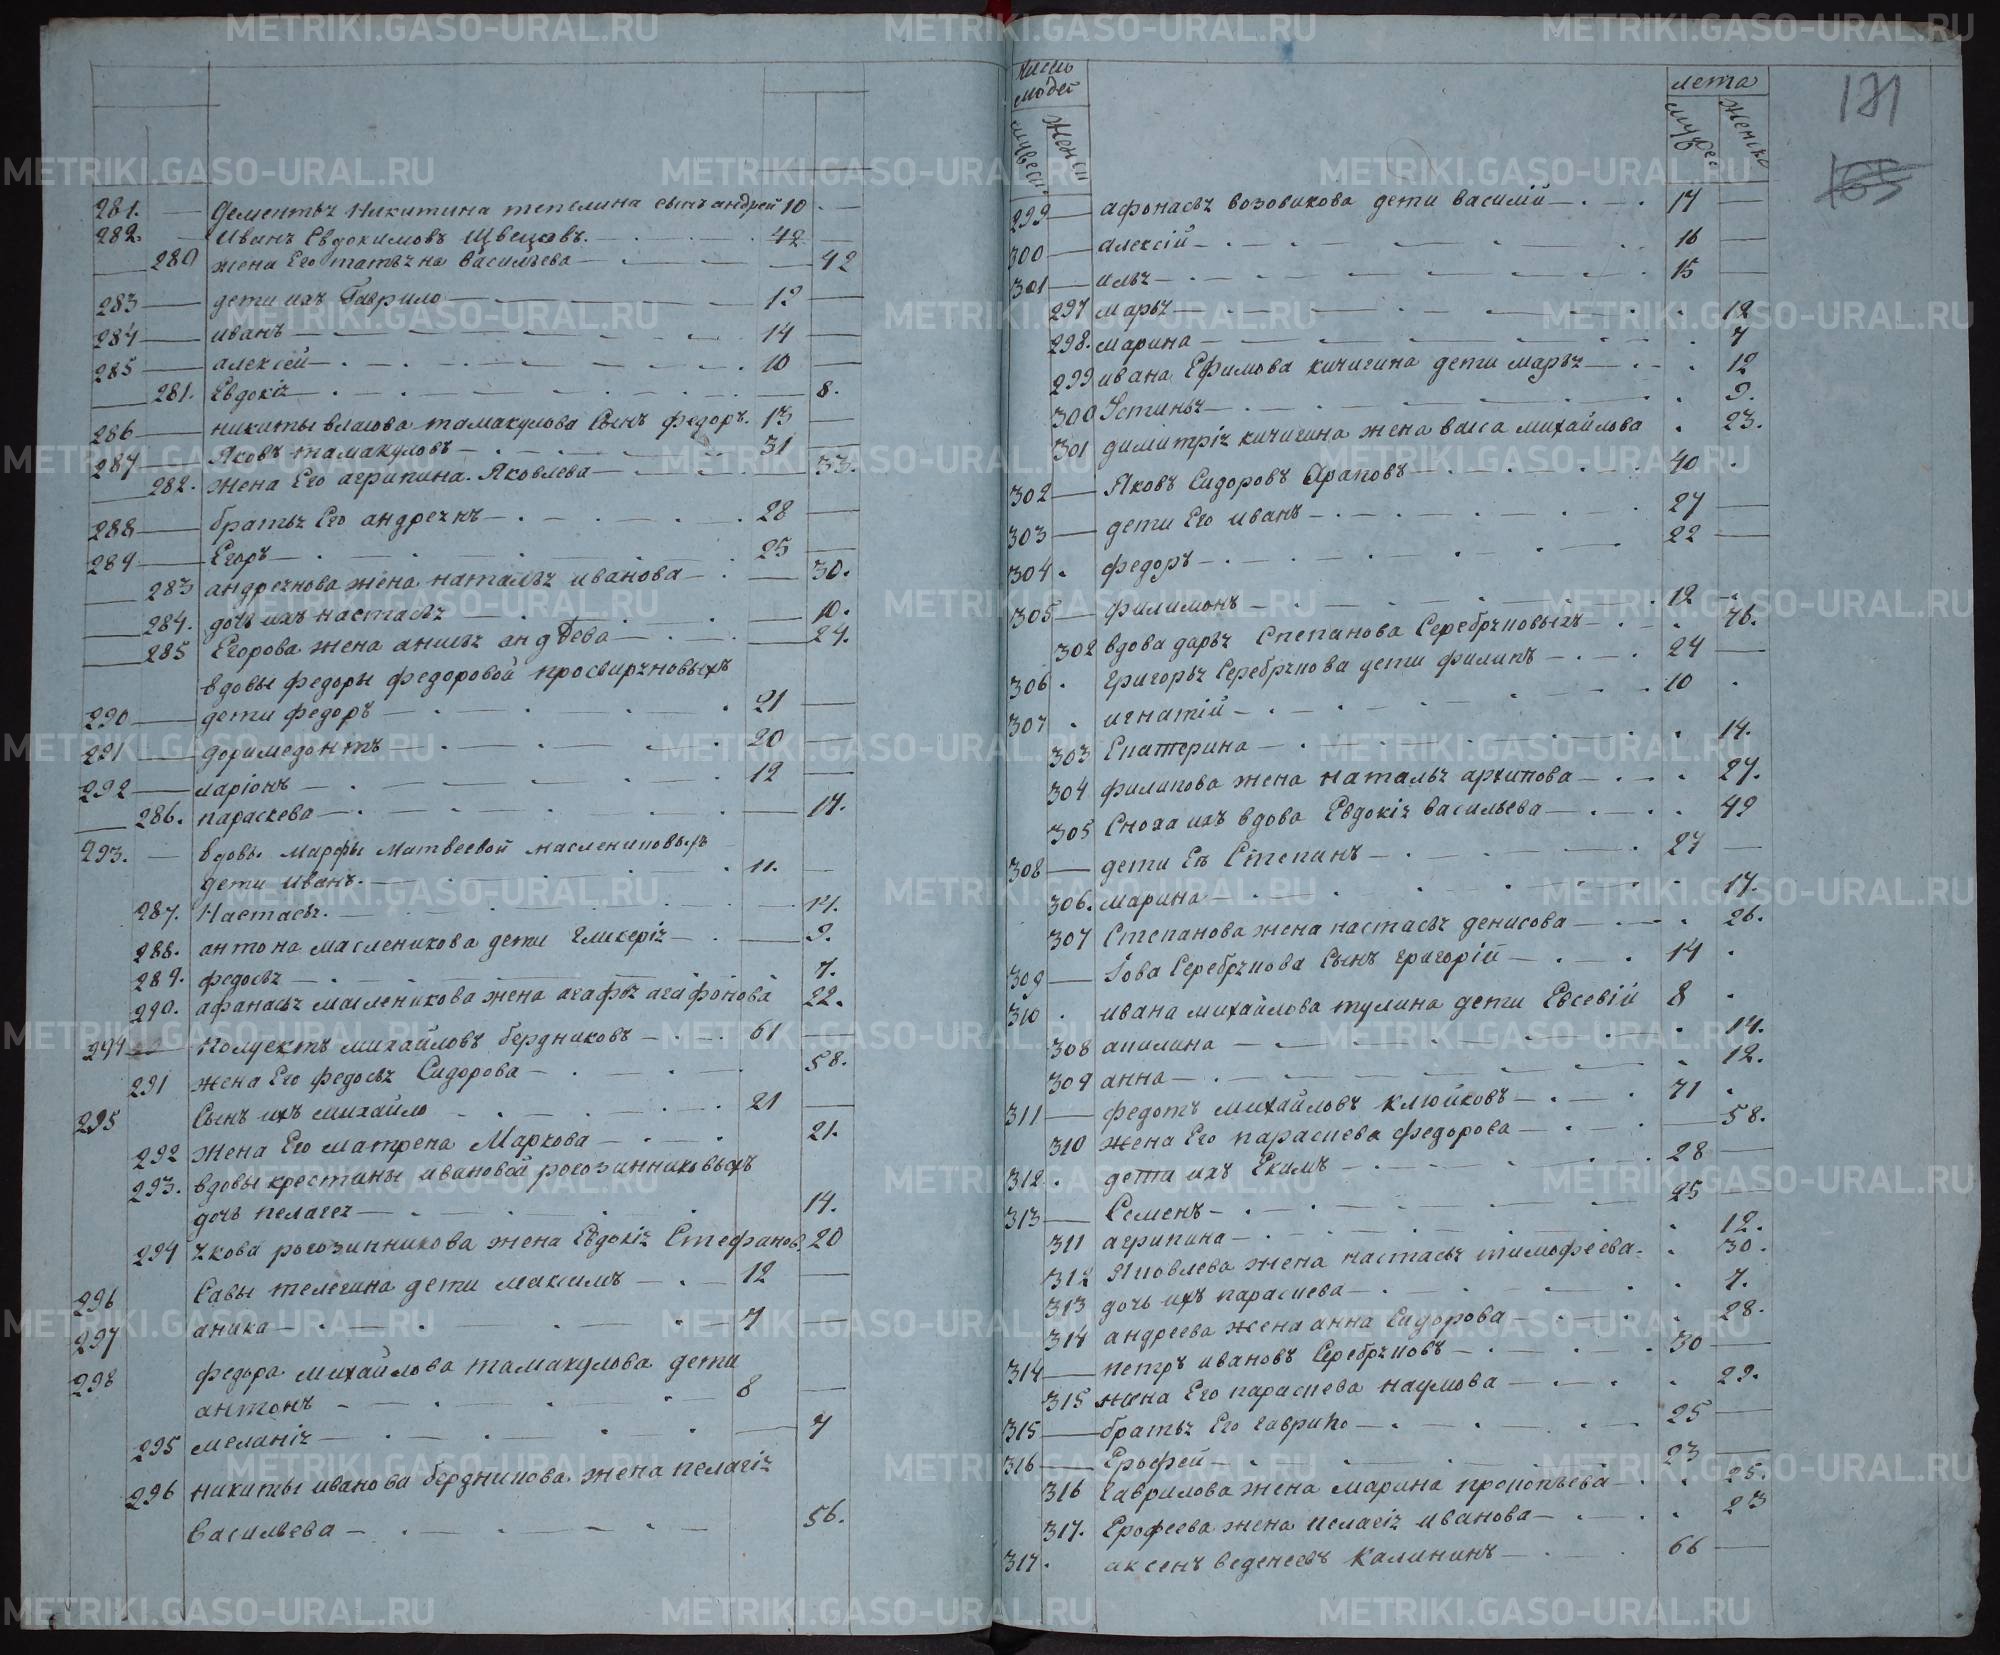 281. — Дементья Никитина тепелина сынъ андрей 10 —
282. — Иванъ Евдокимовъ Швецовъ. 42 —
— 280 жена Его татьяна Васильева — 42
283 — дети ихъ Гаврило 12 —
284 — иванъ 14 —
285 — алексей 10 —
— 281. Евдокія — 8.
286 — никиты власова тамакулова Сынъ федоръ. 13 —
287 — Яковъ тамакуловъ 31
— 282. жена Его агрипина Яковлева — 33.
288 — братья Его андреянъ 28 —
289 — Егоръ 25 —
— 283 андреянова жена наталья иванова — 30.
— 284. дочь ихъ настасья — 10.
— 285 Егорова жена анисья — 24.
вдовы федоры федоровой просвиряновыхъ
290 — дети федоръ 21 —
291 — доримедонтъ 20 —
292 — ларіонъ 12 —
— 286. параскева — 17.
293. — вдовы марфы матвеевой
дети иванъ. 11. —
287. Настасья. — 14.
288. антона масленикова дети гликерія — 9.
289. федосья 7.
290. афанасья масленикова жена агафья агафонова 22.
294 — Полуектъ михайловъ бердниковъ 61 —
291 жена Его федосья Сидорова 58.
295 Сынъ ихъ михайло 21 —
292 жена Его матрена Маркова 21.
293. вдовы крестины ивановой рогозинниковыхъ
дочь пелагея 14.
294 якова рогозинникова жена Евдокія Стефанов. 20
296 Савы телегина дети максимъ 12 —
297 аника 7 —
298 федора михайлова тамакулова дети
антонъ 8 —
295 меланія — 7
296 никиты иванова бердникова жена пелагія
Васильева 56.
число людей
мужеска женск
лета
мужеск женска
171
165
299 — афонасья возовикова дети василій 17 —
300 — алексій 16 —
301 — илья 15 —
297 марья 12
298. марина 7
299 ивана Ефимова кичигина дети марья 12
300 Устинья 9.
301 димитрія кичигина жена васса михайлова 23.
302 — Яковъ Сидоровъ Араповъ 40
303 — дети Его иванъ 27 —
304. федоръ 22 —
305 — филимонъ 12
302 вдова дарья Степанова Серебряковыхъ 76.
306. григорья Серебрякова дети филипъ 24 —
307. игнатій 10
303 Екатерина 14.
304 филипова жена наталья архипова 27.
305 Сноха ихъ вдова Евдокія васильева 49
308 — дети Ея Степанъ 27 —
306. марина 17.
307 Степанова жена настасья денисова 26.
309 — Іова Серебрякова Сынъ григорій 14
310. ивана михайлова тулина дети Евсевій 8
308 акилина 14.
309 анна 12.
311 — федотъ михайловъ клюйковъ 71
310 жена Его параскева федорова — 58.
312. дети ихъ Екимъ 28 —
313 — Семенъ 25 —
311 агрипина 12.
312 Яковлева жена настасья тимофеева. 30.
313 дочь ихъ параскева 7.
314 андреева жена анна Сидорова 28.
314 — петръ ивановъ Серебряковъ 30 —
315 жена Его параскева наумова 29.
315 — братья Его гаврило 25 —
316 — Ерофей 23 —
316 гаврилова жена марина прокопьева 25.
317. Ерофеева жена пелагія иванова 23
317. аксенъ веденеевъ Калининъ 66 —
METRIKI.GASO-URAL.RU